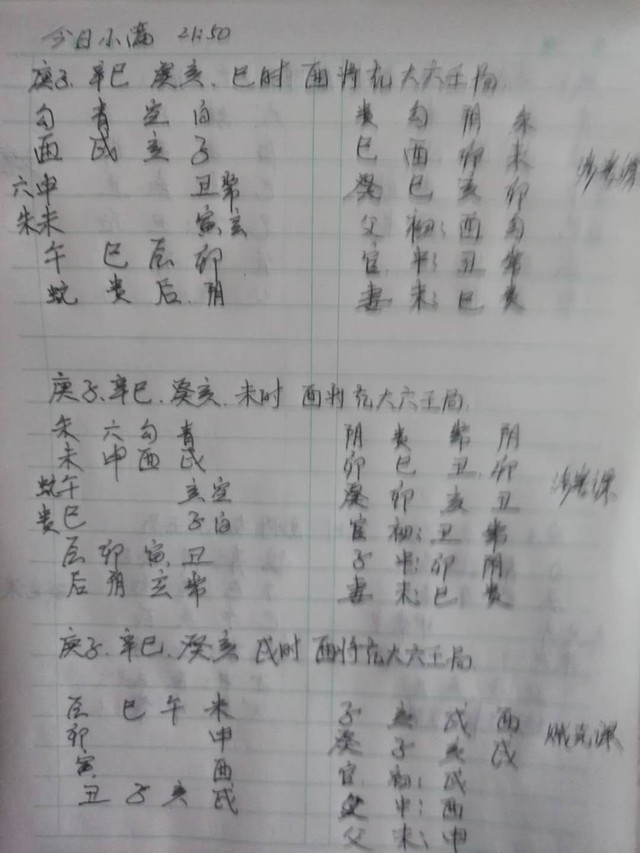 今日小满 21:50
庚子、辛巳 癸亥、巳时 酉将 大六壬局
勾 青 空 白 贵 勾 阴 朱
酉 戌 亥 子 巳 酉 卯 未 涉害课
六申 丑常 癸 巳 亥 卯
朱未 寅玄 父 初: 酉 勾
午 巳 辰 卯 官 中: 丑 常
蛇 贵 后 阴 妻 末: 巳 贵
庚子、辛巳、癸亥、未时 酉将 大六壬局
朱 六 勾 青 阴 贵 常 阴
未 申 酉 戌 卯 巳 丑 卯 涉害课
蛇午 亥空 癸 卯 亥 丑
贵巳 子白 官 初: 丑 常
辰 卯 寅 丑 子 中: 卯 阴
后 阴 玄 常 妻 末: 巳 贵
庚子、辛巳、癸亥 戌时 酉将 大六壬局
辰 巳 午 未 子 亥 戌 酉
卯 申 癸 子 亥 戌
寅 酉 官 初: 戌
丑 子 亥 戌 父 中: 酉
父 末: 申